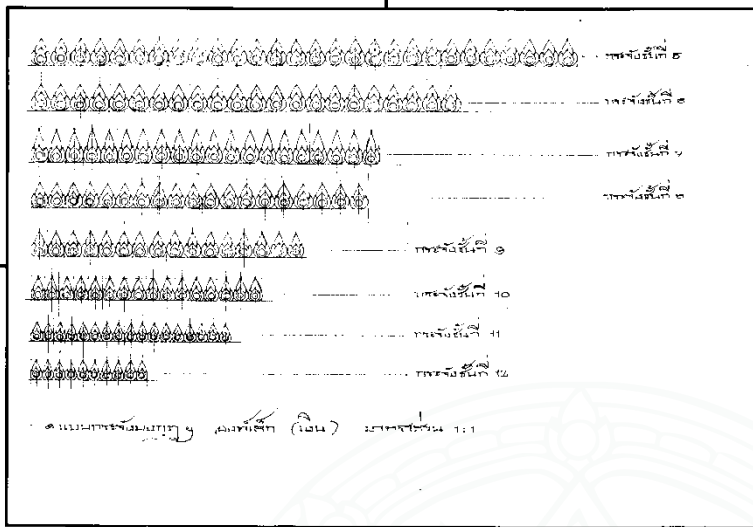 กระจังชั้นที่ 5
กระจังชั้นที่ 6
กระจังชั้นที่ 7
กระจังชั้นที่ 8
กระจังชั้นที่ 9
กระจังชั้นที่ 10
กระจังชั้นที่ 11
กระจังชั้นที่ 12
แบบกระจังมงกุฎ องค์เล็ก (เงิน) มาตราส่วน 1:1